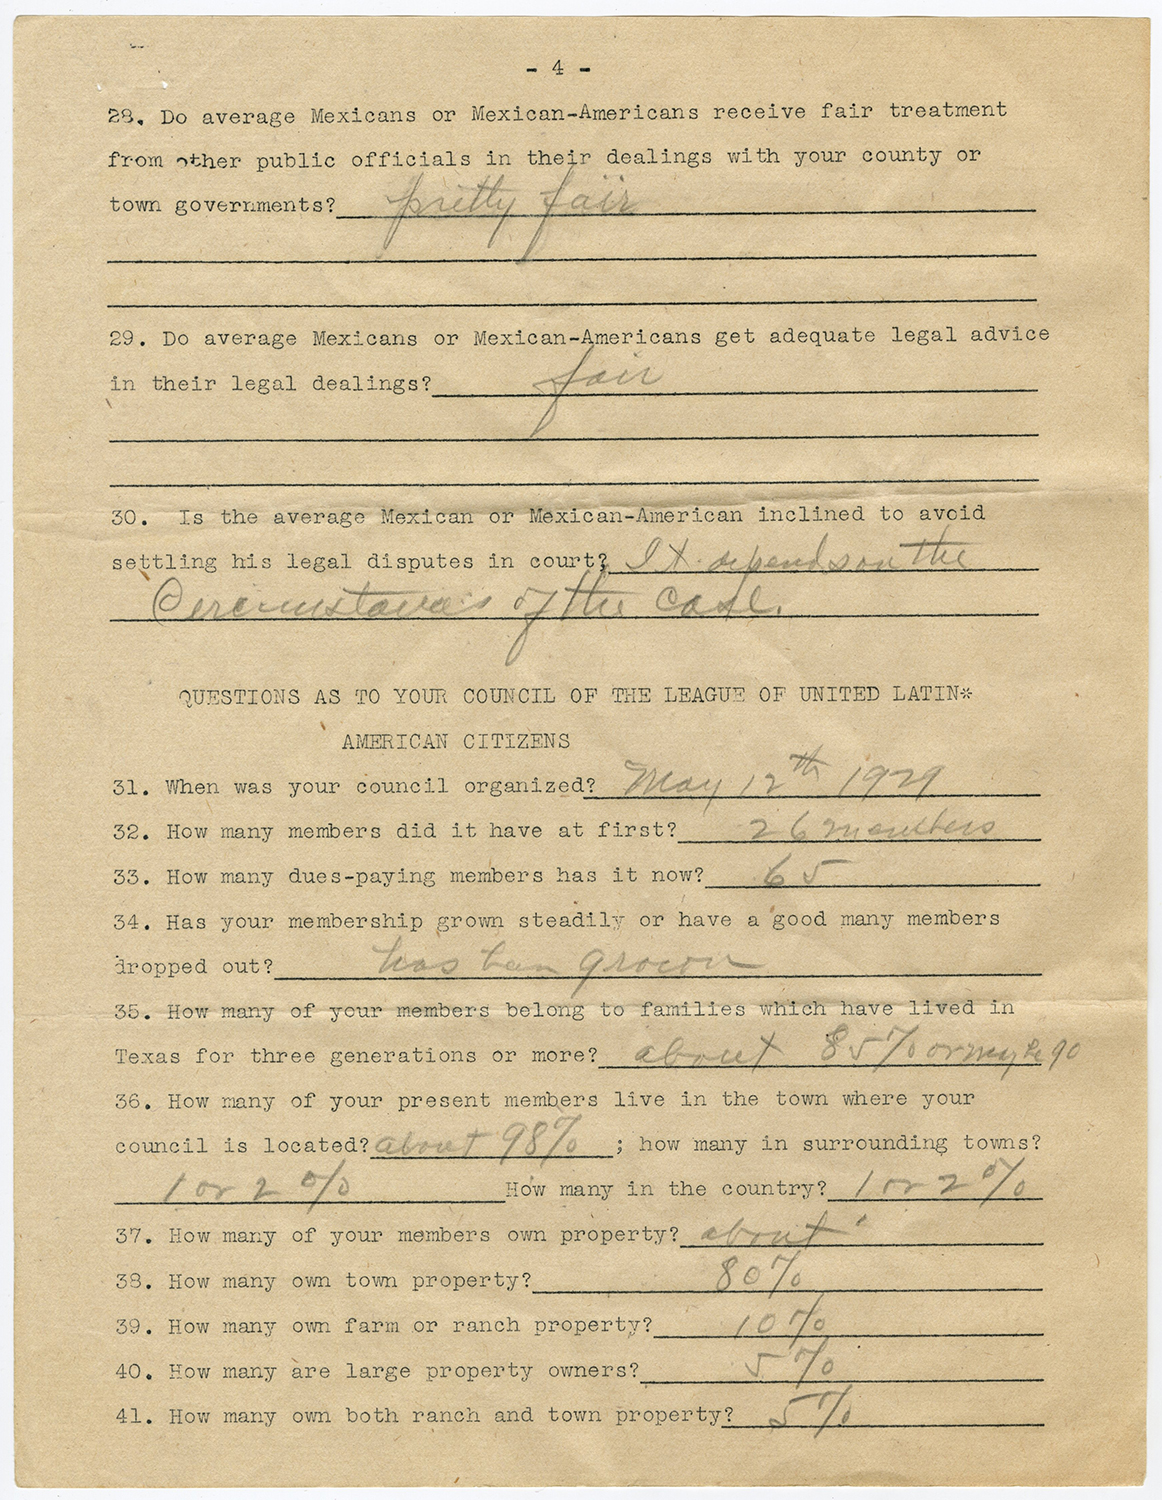 - 4 -
28. Do average Mexicans or Mexican-Americans receive fair treatment
from other public officials in their dealings with your county or
town governments? pretty fair
29. Do average Mexicans or Mexican-Americans get adequate legal advice
in their legal dealings? fair
30. Is the average Mexican or Mexican-American inclined to avoid
settling his legal disputes in court? It depends on the
Circumstances of the case.
QUESTIONS AS TO YOUR COUNCIL OF THE LEAGUE OF UNITED LATIN*
AMERICAN CITIZENS
31. When was your council organized? May 12th 1929
32. How many members did it have at first? 26 members
33. How many dues-paying members has it now? 65
34. Has your membership grown steadily or have a good many members
dropped out? has ben grown
35. How many of your members belong to families which have lived in
Texas for three generations or more? about 85% or may be 90
36. How many of your present members live in the town where your
council is located? about 98% ; how many in surrounding towns?
1 or 2 % How many in the country? 1 or 2 %
37. How many of your members own property? about
38. How many own town property? 80%
39. How many own farm or ranch property? 10%
40. How many are large property owners? 5%
41. How many own both ranch and town property? 5%